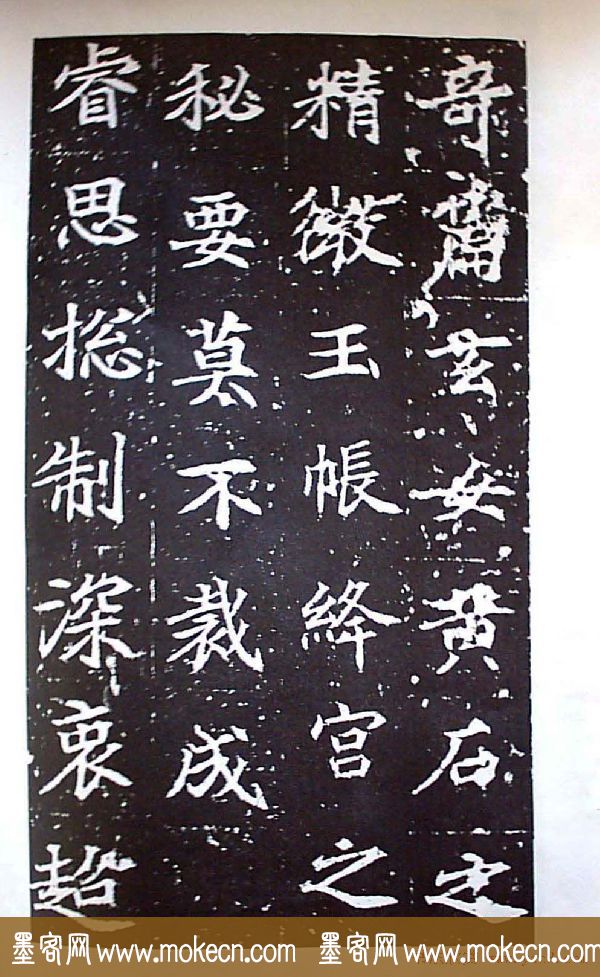 竒玄女黄石之
精微玉帳絳宫之
秘要莫不裁成
睿思捴制深衷超
墨客网 www.mokecn.com 墨客网 www.mokecn.com